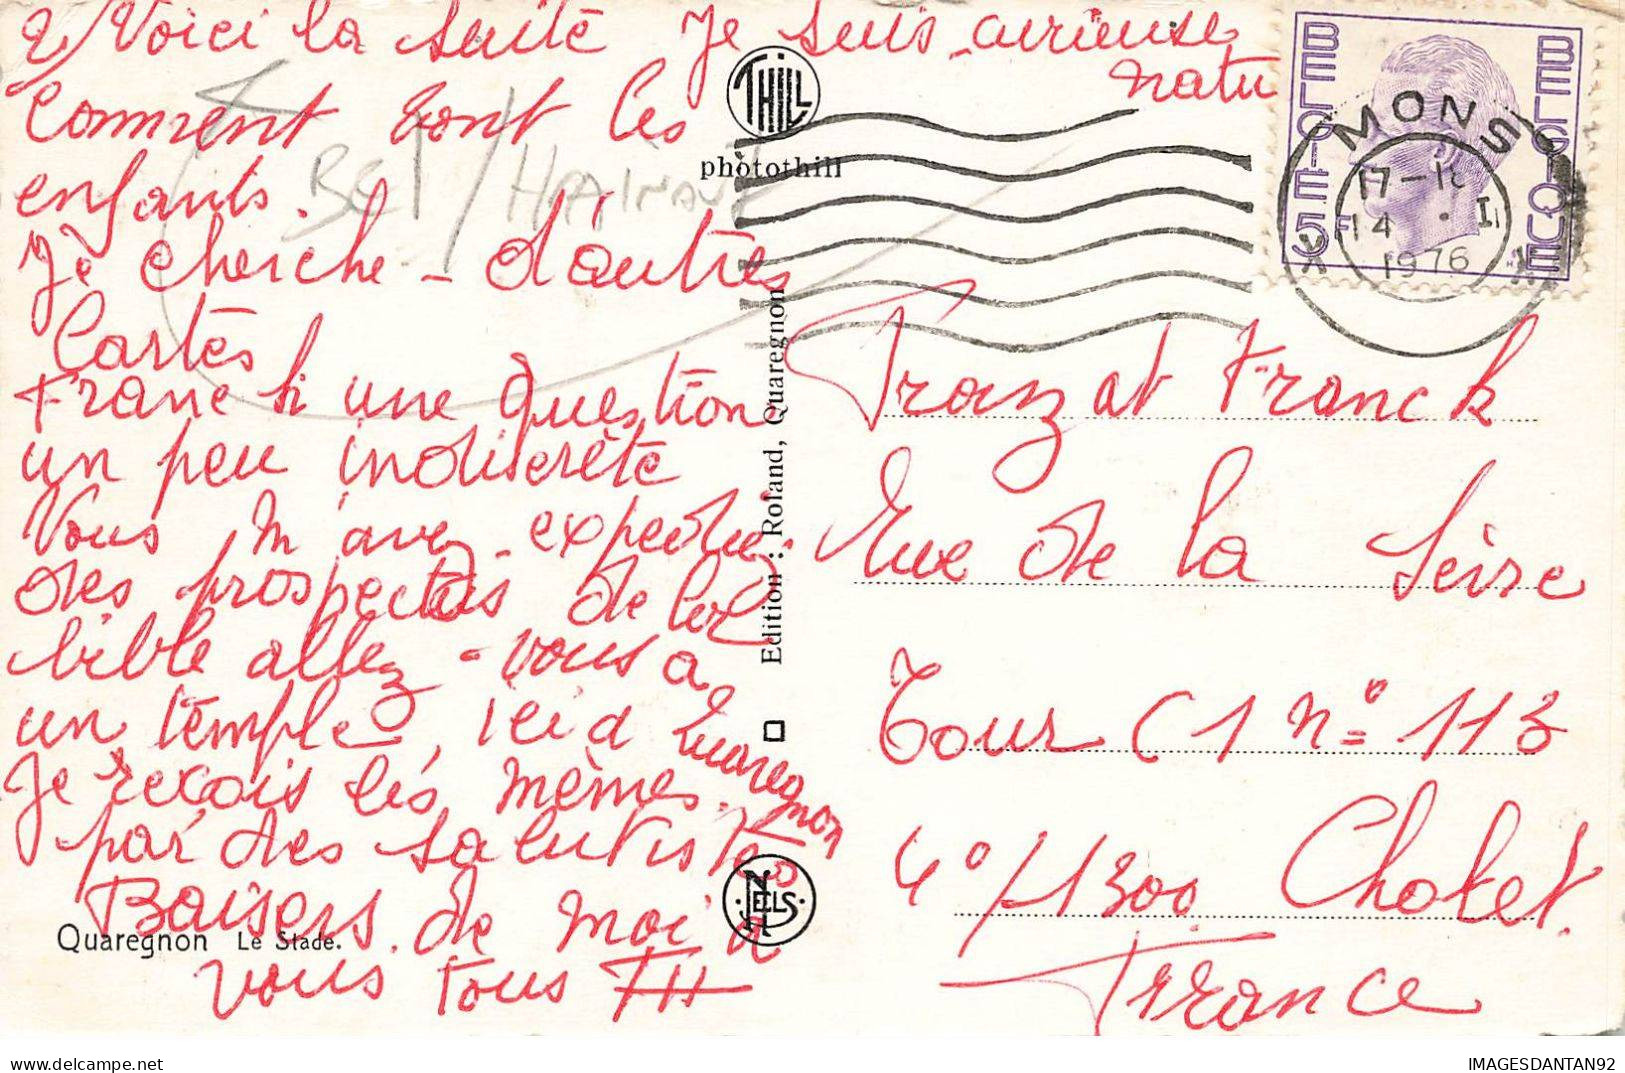 2) Voici la suite Je suis curieuse
natu
Comment sont les
enfants.
Je cherche d'autres
Cartes
Franc si une question
un peu indiscrète
Vous m'avez expedie
des prospectus de la
bible allez-vous a
un temple, ici a Quaregnon
Je reçois les mêmes
par des salutistes
Baisers de moi a
vous tous TH
BEL / HAINAUT
Quaregnon Le Stade.
THILL
photothill
Edition : Roland, Quaregnon
NELS
BELGIE 5F
BELGIQUE
MONS
X
17-18
14 . II
1976
X
Tranzat Franck
Rue de la Seire
Tour C1 nº 113
4º/1300 Cholet.
France
IMAGESDANTAN92